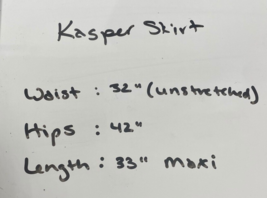 Kasper Skirt
Waist : 32" (unstretched)
Hips : 42"
Length : 33" maxi